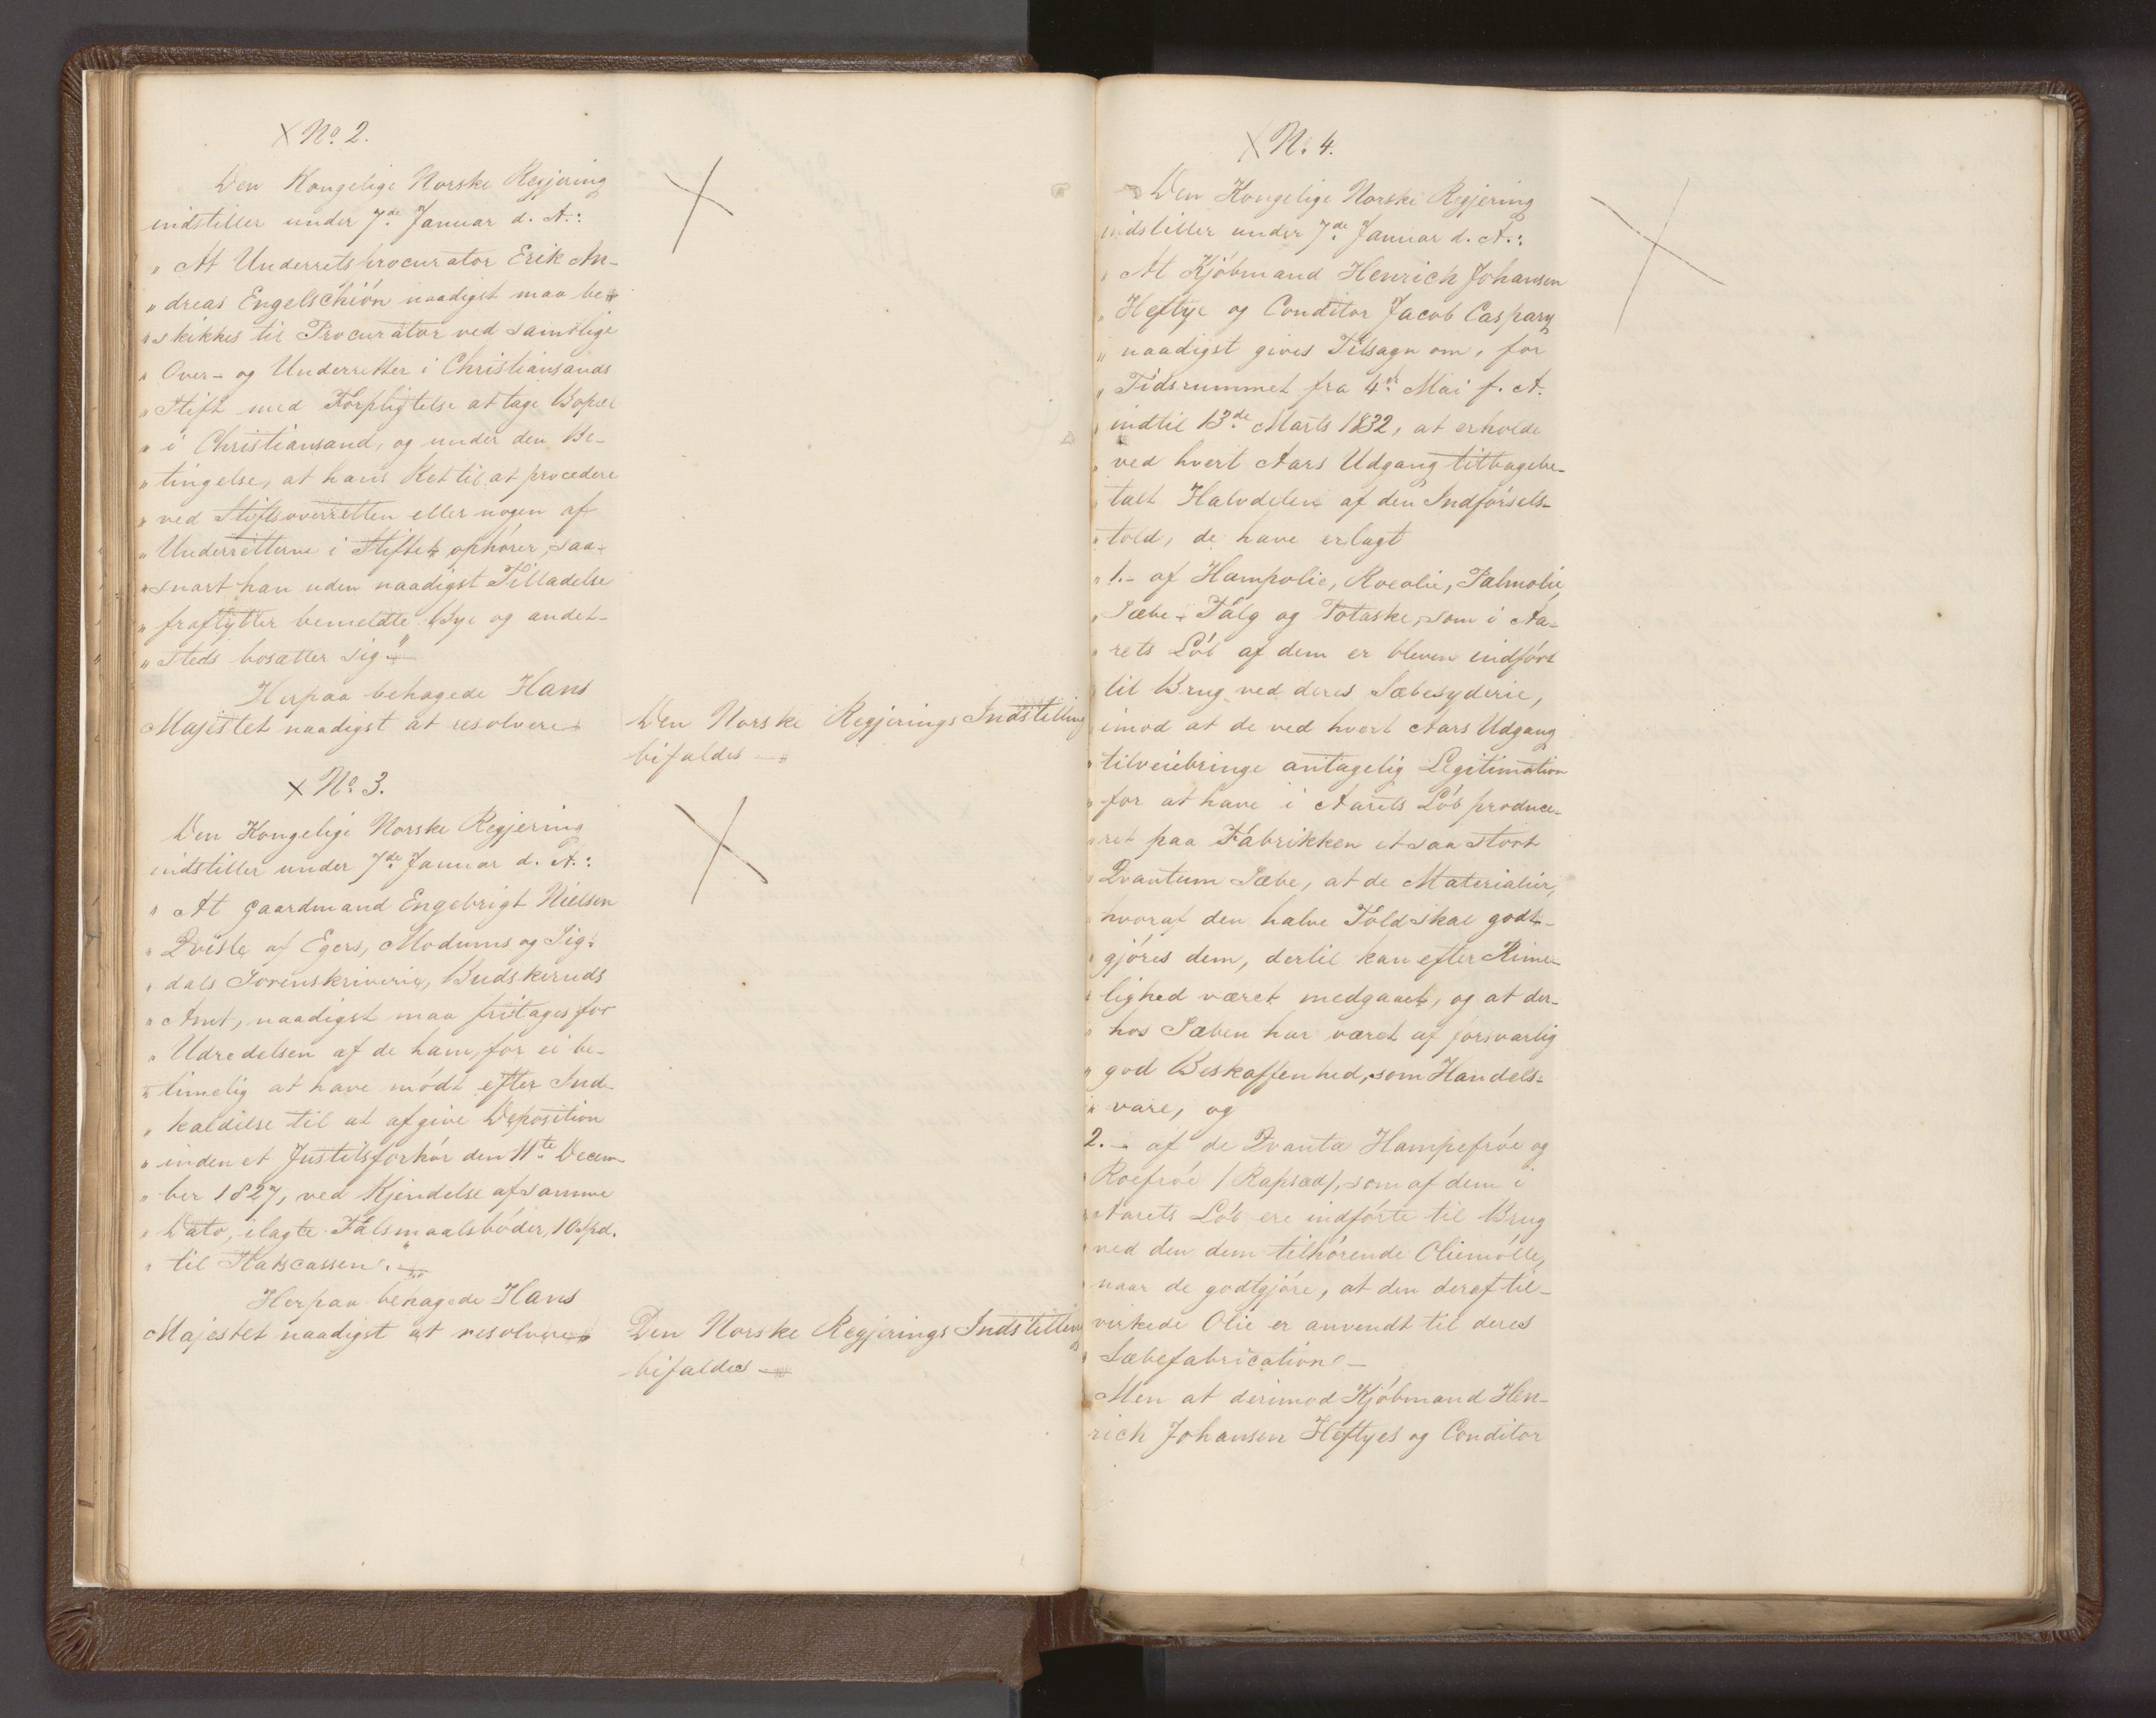 No. 2.
Den Kongelige Norske Regjering
indstiller under 7de Januar d. A.:
" At Underretsprocurator Erik An-
" dreas Engelschiön naadigst maa be-
" skikkes til Procurator ved samtlige
" Over- og Underretter i Christiansands
" Stift med Forpligtelse at tage Bopæl
" i Christiansand, og under den Be-
" tingelse, at hans Ret til at procedere
" ved Stiftsoverretten eller nogen af
" Underretterne i Stiftet ophörer, saa-
" snart han uden naadigst Tilladelse
" fraflytter bemeldte Bye og andet-
" steds bosætter sig."
Herpaa behagede Hans
Majestet naadigst at resolvere
Den Norske Regjerings Indstilling
bifaldes
No. 3.
Den Kongelige Norske Regjering
indstiller under 7de Januar d. A.:
" At Gaardmand Engebrigt Nielsen
" Qvisle af Egers, Modums og Sig-
" dals Sorenskriverie, Budskeruds
" Amt, naadigst maa fritages for
" Udredelsen af de ham, for ei be-
" timelig at have mödt efter Ind-
" kaldelse til at afgive Deposition
" inden et Justitsforhör den 11te Decem-
" ber 1827, ved Kjendelse af samme
" Dato, ilagte Falsmaalsböder, 10 Spd.
" til Statscassen."
Herpaa behagede Hans
Majestet naadigst at resolvere
Den Norske Regjerings Indstilling
bifaldes
N. 4.
Den Kongelige Norske Regjering
indstiller under 7de Januar d. A.:
" At Kjöbmand Henrich Johansen
" Heftye og Conditor Jacob Caspary
" naadigst gives Tilsagn om, for
" Tidsrummet fra 4de Mai f. A.
" indtil 13de Marts 1832, at erholde
" ved hvert Aars Udgang tilbagebe-
" talt Halvdelen af den Indförsels-
" told, de have erlagt
" 1.- af Hampolie, Roeolie, Palmolie,
" Sæbe-Talg og Potaske, som i Aa-
" rets Löb af dem er bleven indfört
" til Brug ved deres Sæbesyderie,
" imod at de ved hvert Aars Udgang
" tilveiebringe antagelig Legitimation
" for at have i Aarets Löb produce-
" ret paa Fabrikken et saa stort
" Qvantum Sæbe, at de Materialier,
" hvoraf den halve Told skal godt-
" gjöres dem, dertil kan efter Rime-
" lighed været medgaaet, og at der-
" hos Sæben har været af forsvarlig
" god Beskaffenhed, som Handels-
" vare, og
2.- af de Qvanta Hampefröe og
" Roefröe /Rapsæd/, som af dem i
" Aarets Löb ere indförte til Brug
" ved den dem tilhörende Oliemölle,
" naar de godtgjöre, at den deraf til-
virkede Olie er anvendt til deres
" Sæbefabrication.-
Men at derimod Kjöbmand Hen-
rich Johansen Heftyes og Conditor